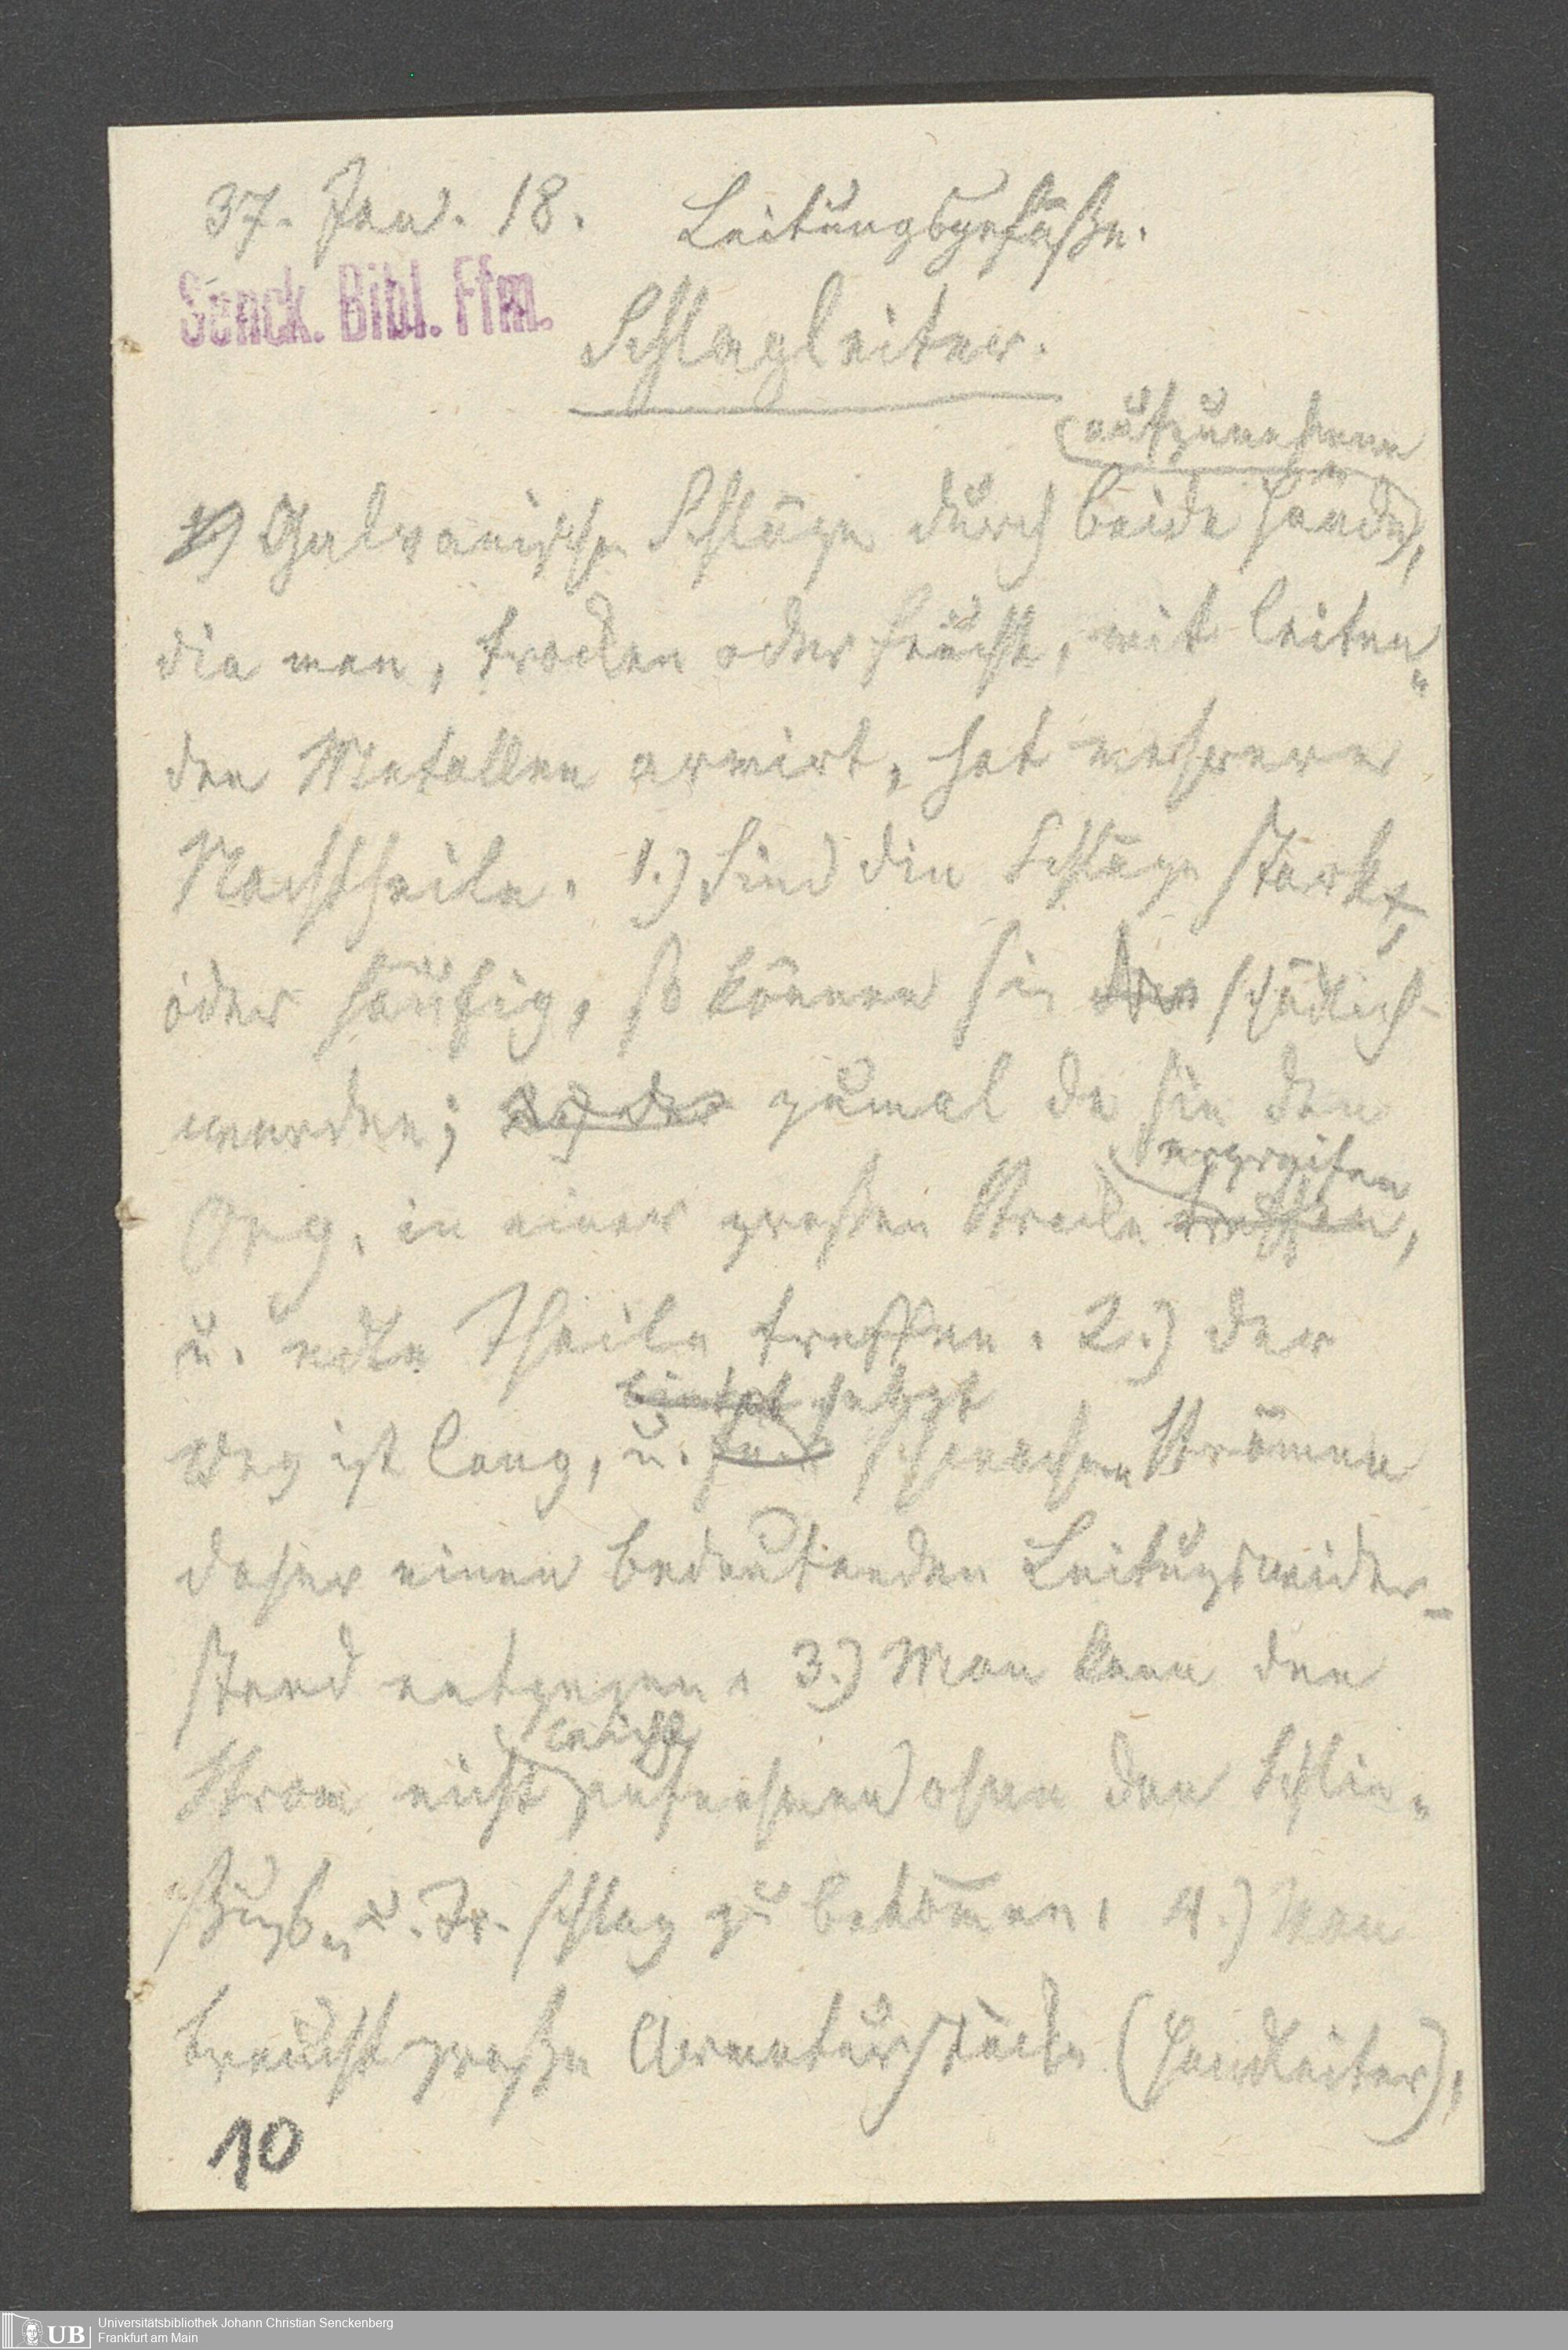 37. Jan. 18. Leitungsgefäße.
Senck. Bibl. Ffm.
Schlagleiter.
aufzunehmen
Galvanische Schläge durch beide Hände,
die man, trocken oder feucht, mit leiten„
den Metallen armirt, hat mehrere
Nachtheile. 1.) Sind die Schläge stark,
oder häufig, so können sie der schädlich
werden; 2.) der zumal da sie den
ergreifen
Org. in einer großen Strecke treffen,
u. edle Theile treffen. 2.) der
bietet setzt
Weg ist lang, u. schwachen Strömen
daher einen bedeutenden Leitungswider-
stand entgegen. 3.) Man kann den
leicht
Strom nicht aufnehmen ohne den Schlie„
ßungs„ u. Tr. schlag zu bekom̅en. 4.) Man
braucht große Armaturstücke (Handleiter),
10
UB Universitätsbibliothek Johann Christian Senckenberg
Frankfurt am Main